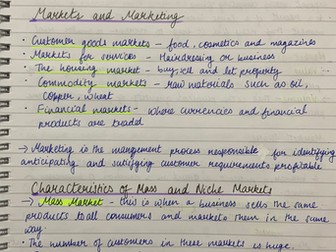 Markets and Marketing
· Customer goods markets - food, cosmetics and magazines
· Markets for services - Hairdressing or business
· The housing market - buy, sell and let property
· Commodity markets - raw materials such as oil,
copper, wheat
· Financial markets - where currencies and financial
products are traded
→ Marketing is the mangement process responsible for identifying
anticipating and satisfying customer requirements profitable
Characteristics of Mass and Niche Markets
→ Mass Market - this is when a business sells the same
products to all consumers and markets them in the same
way
· The number of customers in these markets is huge